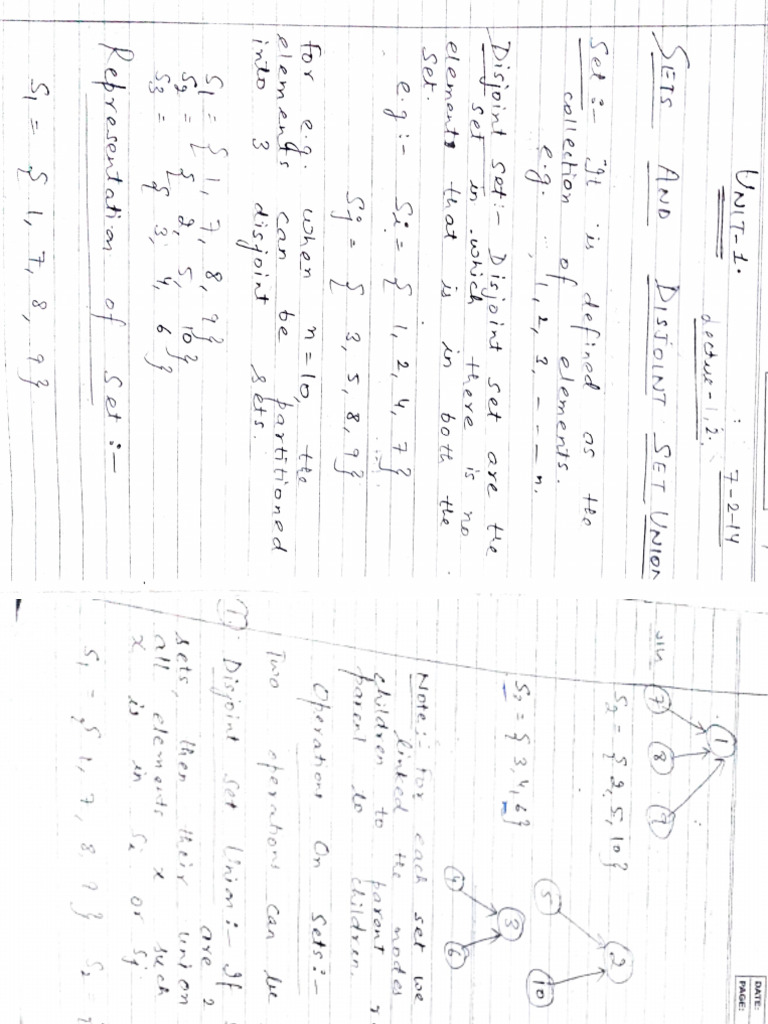 UNIT-1.
7-2-14
Lecture-1,2.
SETS AND DISJOINT SET UNION
Set :- It is defined as the
collection of elements.
e.g. 1, 2, 3, - - - n.
Disjoint set:- Disjoint set are the
set in which there is no
elements that is in both the
set.
e.g:- Si = { 1, 2, 4, 7 }
Sj = { 3, 5, 8, 9 }
for e.g. when n=10, the
elements can be partitioned
into 3 disjoint sets.
S1 = { 1, 7, 8, 9 }
S2 = { 2, 5, 10 }
S3 = { 3, 4, 6 }
Representation of Set :-
S1 = { 1, 7, 8, 9 }
DATE:
PAGE:
1
7 8 9
S2 = { 2, 5, 10 }
2
5 10
S3 = { 3, 4, 6 }
3
4 6
Note:- for each set we
linked the nodes
children to parent
parent to children.
Operations On Sets:-
Two operations can be
Disjoint Set Union:- If
are 2
sets, then their union
all elements x such
x is in Si or Sj
S1 = { 1, 7, 8, 9 } S2 = {